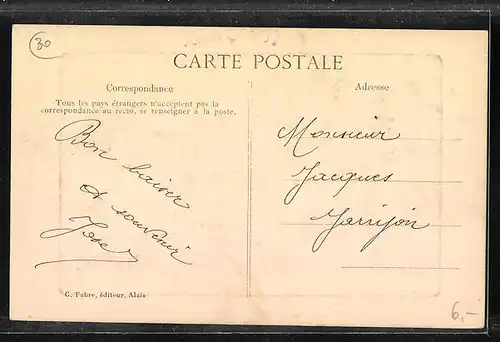 30
CARTE POSTALE
Correspondance
Tous les pays étrangers n'acceptent pas la
correspondance au recto, se renseigner à la poste.
Bon baiser
et souvenir
Adresse
Monsieur
Jacques
C. Fabre, éditeur, Alais
6,-